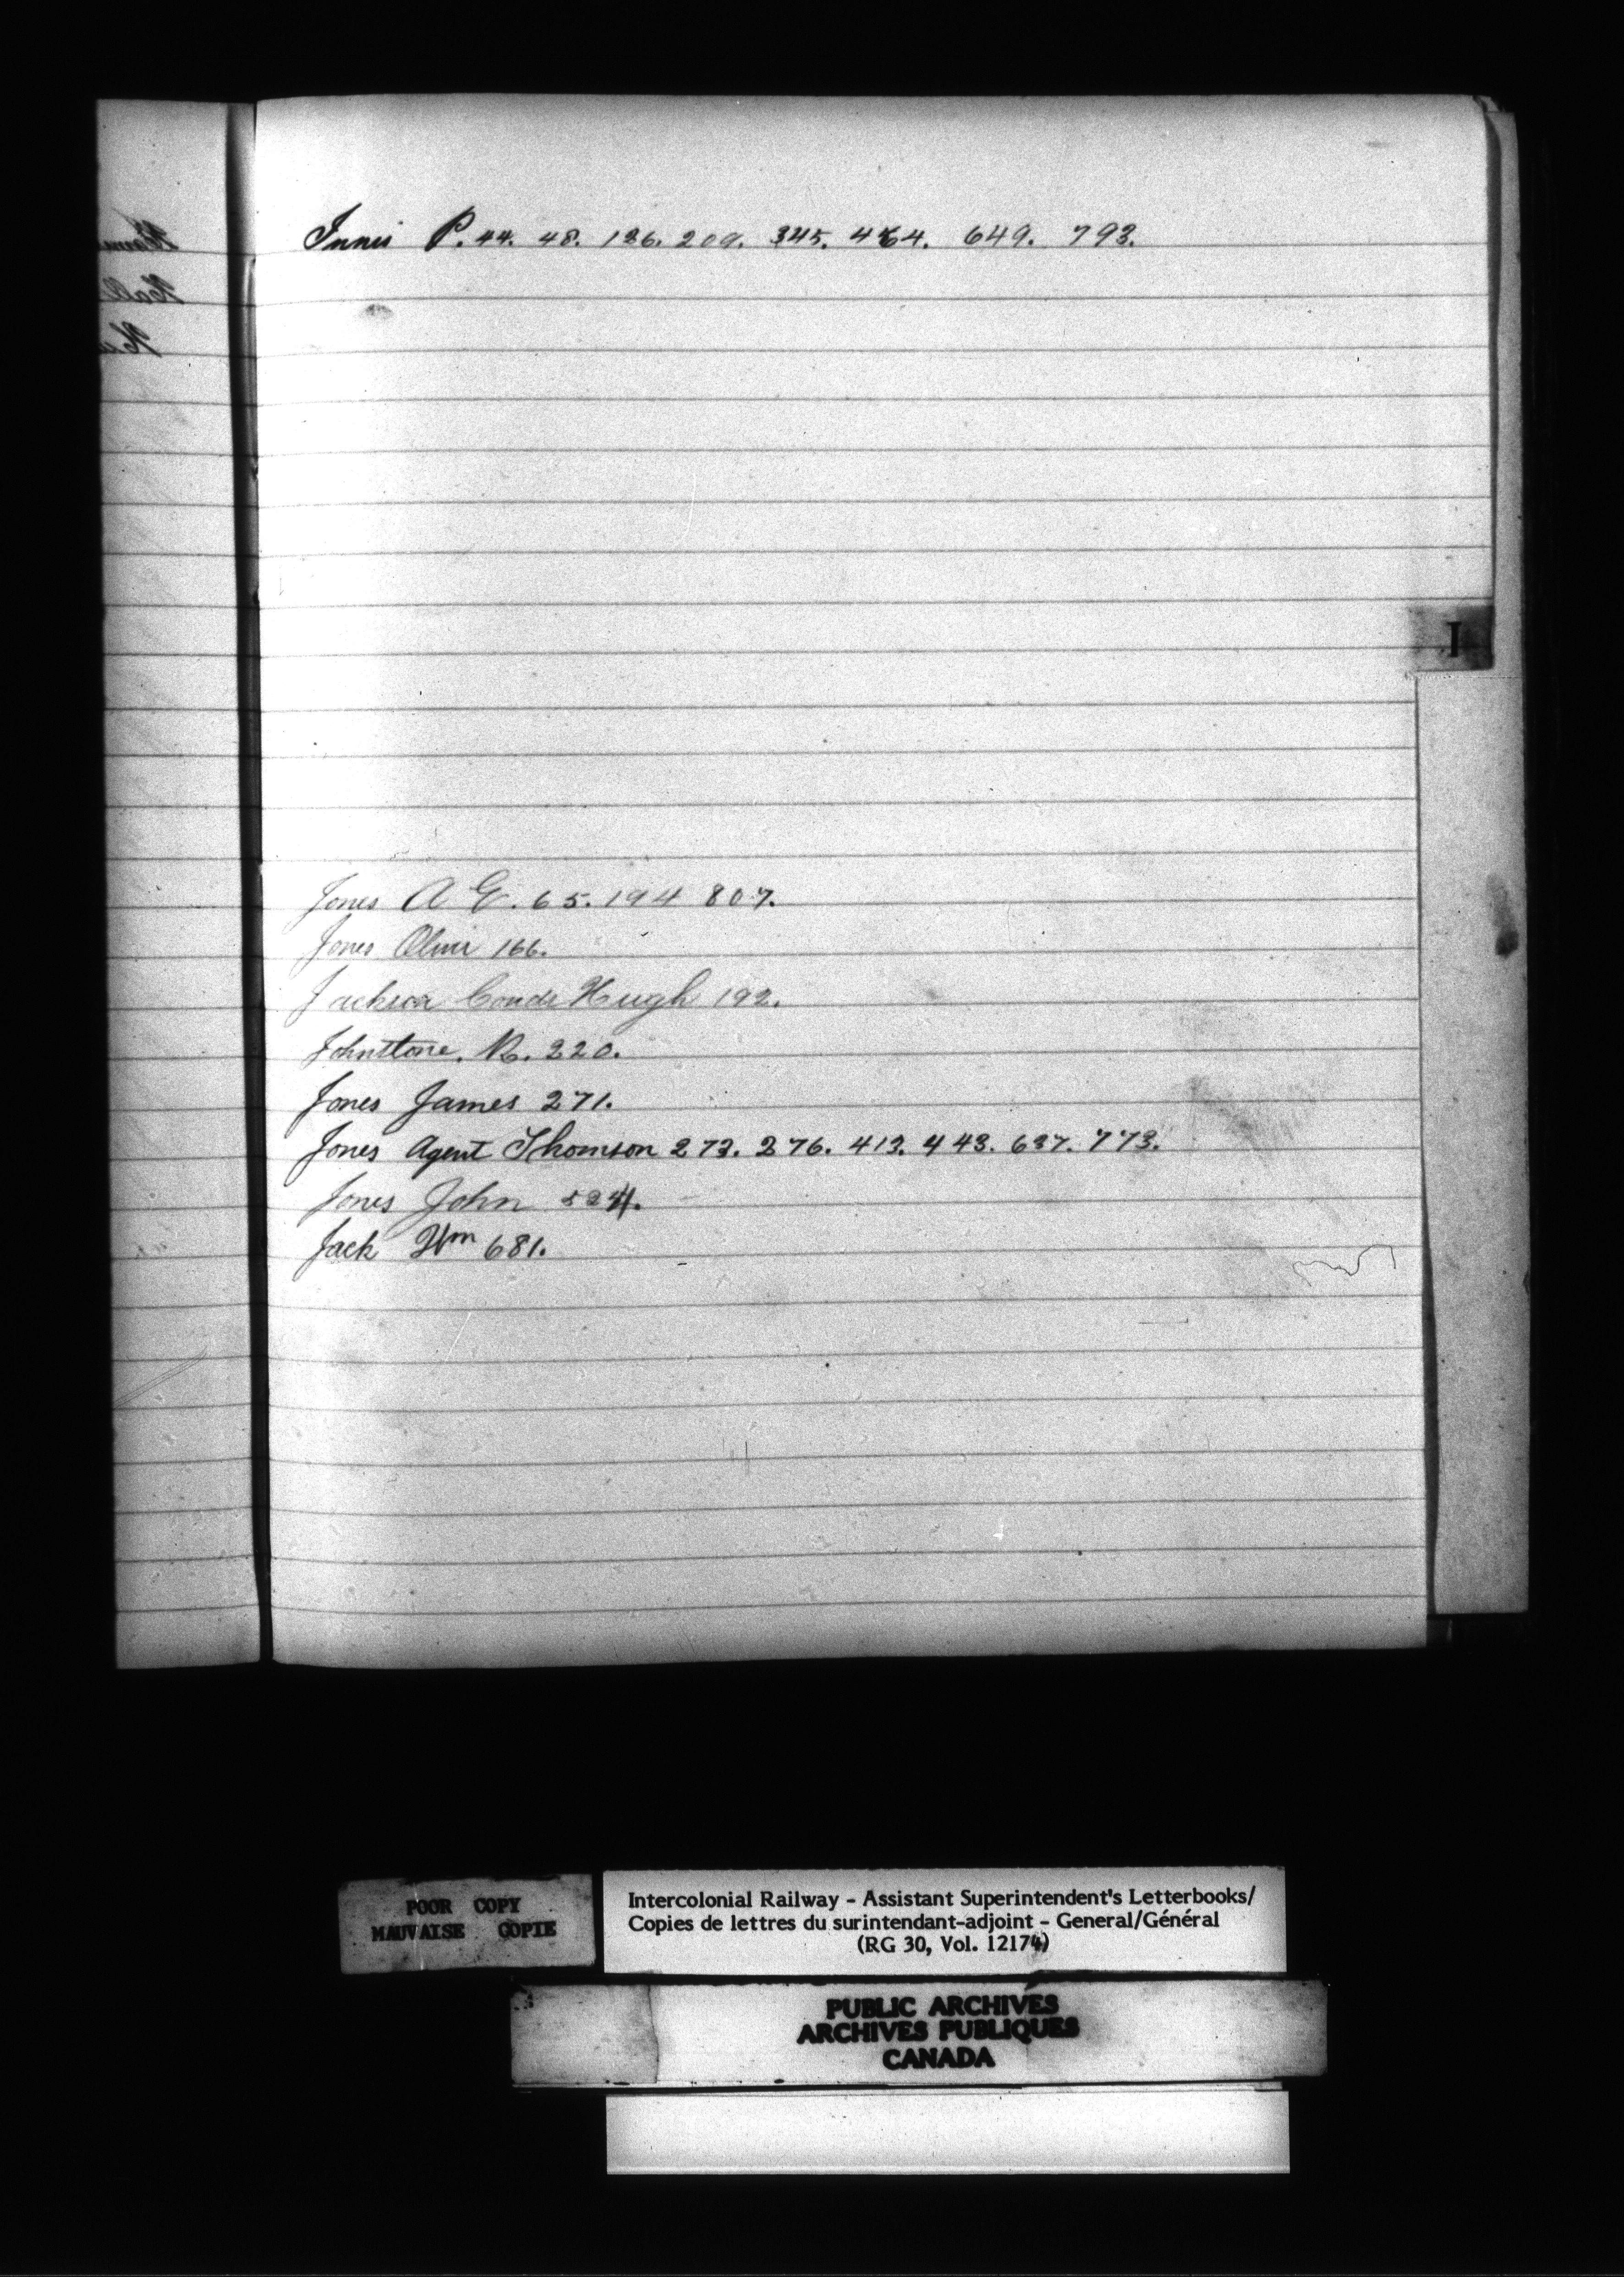 Innis P. 44. 48. 136. 209. 345. 464. 649. 793.
I
Jones A G. 65. 194 807.
Jones Oliver 166.
Jackson Condr Hugh 192.
Johnstone. R. 220.
Jones James 271.
Jones Agent Thomson 273. 276. 413. 443. 637. 773.
Jones John 524.
Jack Wm 681.
POOR COPY
MAUVAISE COPIE
Intercolonial Railway - Assistant Superintendent's Letterbooks/
Copies de lettres du surintendant-adjoint - General/Général
(RG 30, Vol. 12174)
PUBLIC ARCHIVES
ARCHIVES PUBLIQUES
CANADA